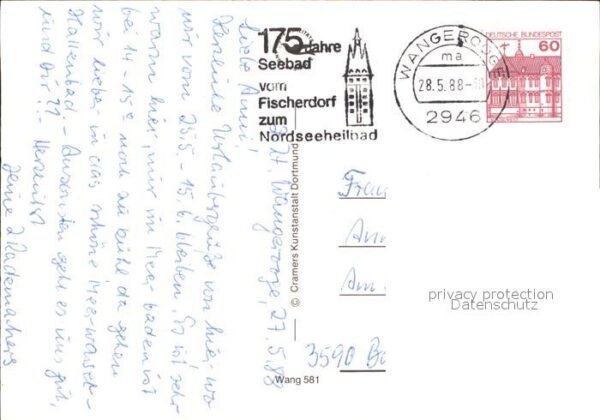 z.Zt. Wangerooge, 27.5.88
Liebe Anni!
Herzliche Urlaubsgrüße von hier, wo
wir vom 23.5. - 15.6. bleiben. Es ist sehr
warm hier, nur im Meer baden ist
bei 14-15° noch zu kühl, da gehen
wir lieber in das schöne Meerwasser-
Hallenbad. - Ansonsten geht es uns gut,
und Dir?! - Herzlichst
Deine 2 Rademachers
175 Jahre
Seebad
vom
Fischerdorf
zum
Nordseeheilbad
WANGEROOGE
ma
28.5.88
2946
DEUTSCHE BUNDESPOST
60
© Cramers Kunstanstalt Dortmund
Wang 581
Frau
Am
3590 Ba
privacy protection
Datenschutz